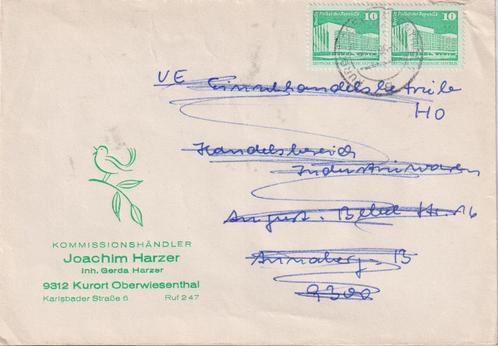 10 Palast der Republik
10 Palast der Republik
VE Einzelhandelsbetriebe
HO
Handelsbereich
Industriewaren
August-Bebel-Str. 16
Annaberg-B
9300
KOMMISSIONSHÄNDLER
Joachim Harzer
Inh. Gerda Harzer
9312 Kurort Oberwiesenthal
Karlsbader Straße 6 Ruf 247